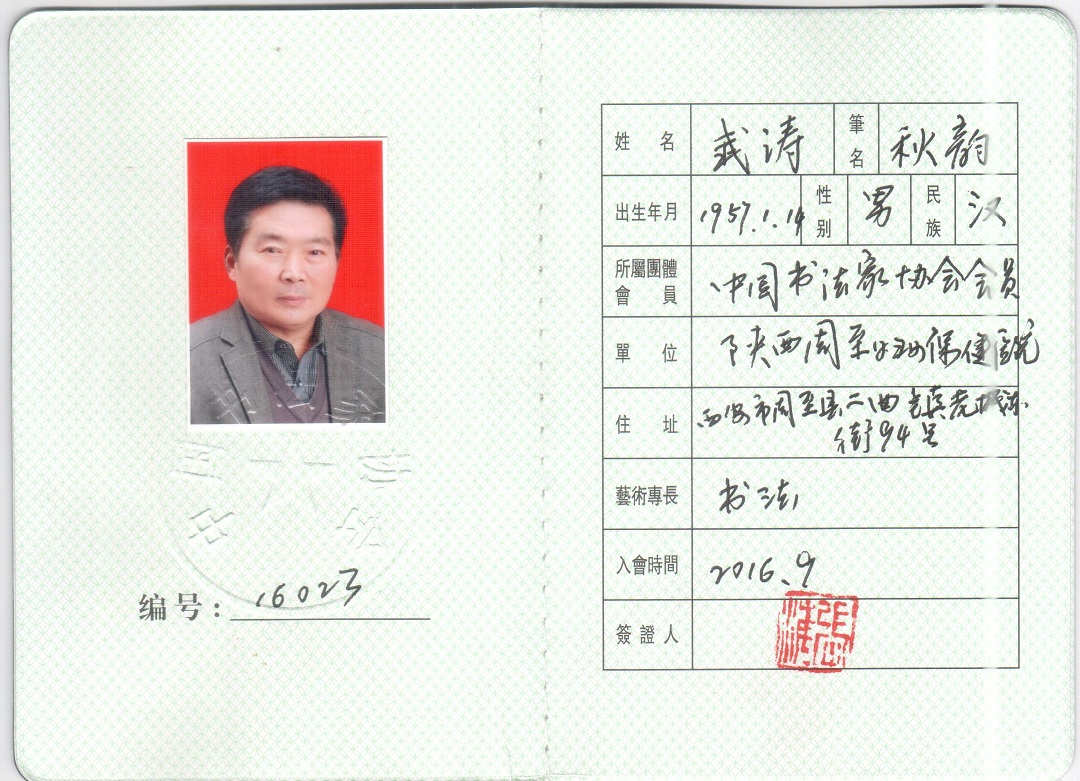 编号: 16023
姓名 武涛 筆名 秋韵
出生年月 1957.1.14 性别 男 民族 汉
所屬團體會員 中国书法家协会会员
單位 陕西周至妇保健院
住址 西安市周至县二曲镇老城
街94号
藝術專長 书法
入會時間 2016.9
簽證人